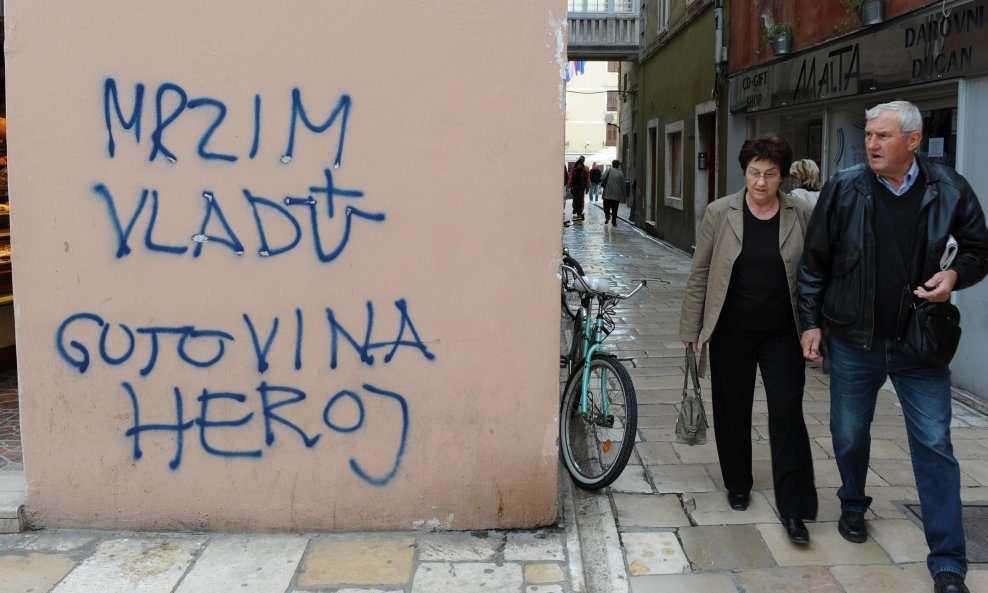 MRZIM
VLADU
GOTOVINA
HEROJ
CD-GIFT
SHOP
MALTA
DAROVNI
DUĆAN